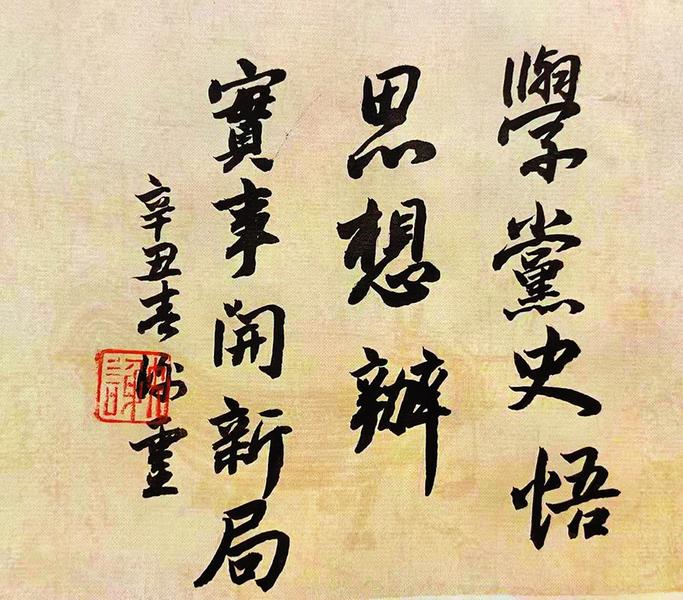 學黨史悟
思想辦
實事開新局
辛丑春